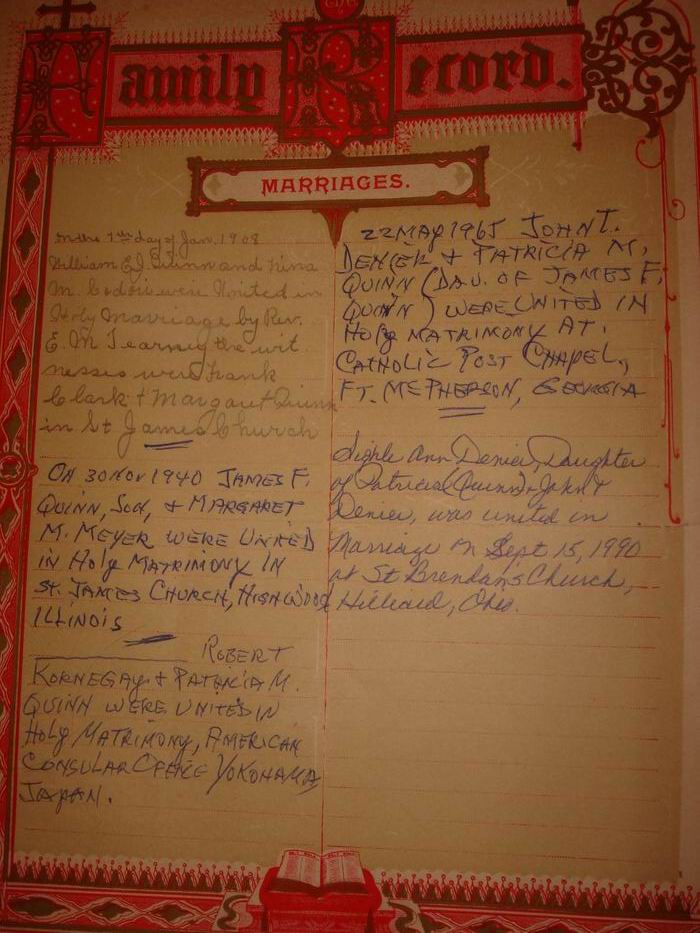 Family Record.
MARRIAGES.
on the 7th day of Jan. 1908
William E.J. Quinn and Nina
M. were United in
Holy Marriage by Rev.
E. M. the wit
nesses were Frank
Clark + Margaret Quinn
in St James Church
ON 30 NOV 1940 JAMES F.
QUINN, SON, & MARGARET
M. MEYER WERE UNITED
IN HOLY MATRIMONY IN
ST. JAMES CHURCH, HIGHWOOD
ILLINOIS
ROBERT
KORNEGAY & PATRICIA M.
QUINN WERE UNITED IN
HOLY MATRIMONY, AMERICAN
CONSULAR OFFICE YOKOHAMA,
JAPAN.
22 MAY 1965 JOHN T.
DENIER & PATRICIA M.
QUINN (DAU. OF JAMES F.
QUINN) WERE UNITED IN
HOLY MATRIMONY AT
CATHOLIC POST CHAPEL,
FT. MCPHERSON, GEORGIA
Ann Denier, Daughter
of Patricia (Quinn) + John T
Denier, was united in
Marriage on Sept 15, 1990
at St Brendan's Church,
Hilliard, Ohio.